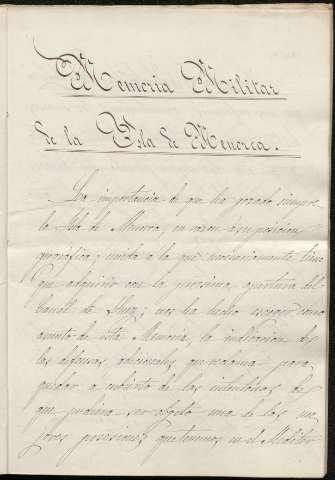 Memoria Militar
de la Isla de Menorca.
La importancia de que ha gozado siempre
la Isla de Menorca, en razon á su posicion
geográfica; unida á la que necesariamente tiene
que adquirir con la proxima apertura del
Canal de Suez; nos ha hecho escojer como
asunto de esta Memoria, la indicacion de
las defensas adicionales que reclama para
quedar á cubierto de las intentonas de
que pudiera ser objeto una de las me
jores posesiones que tenemos en el Mediter